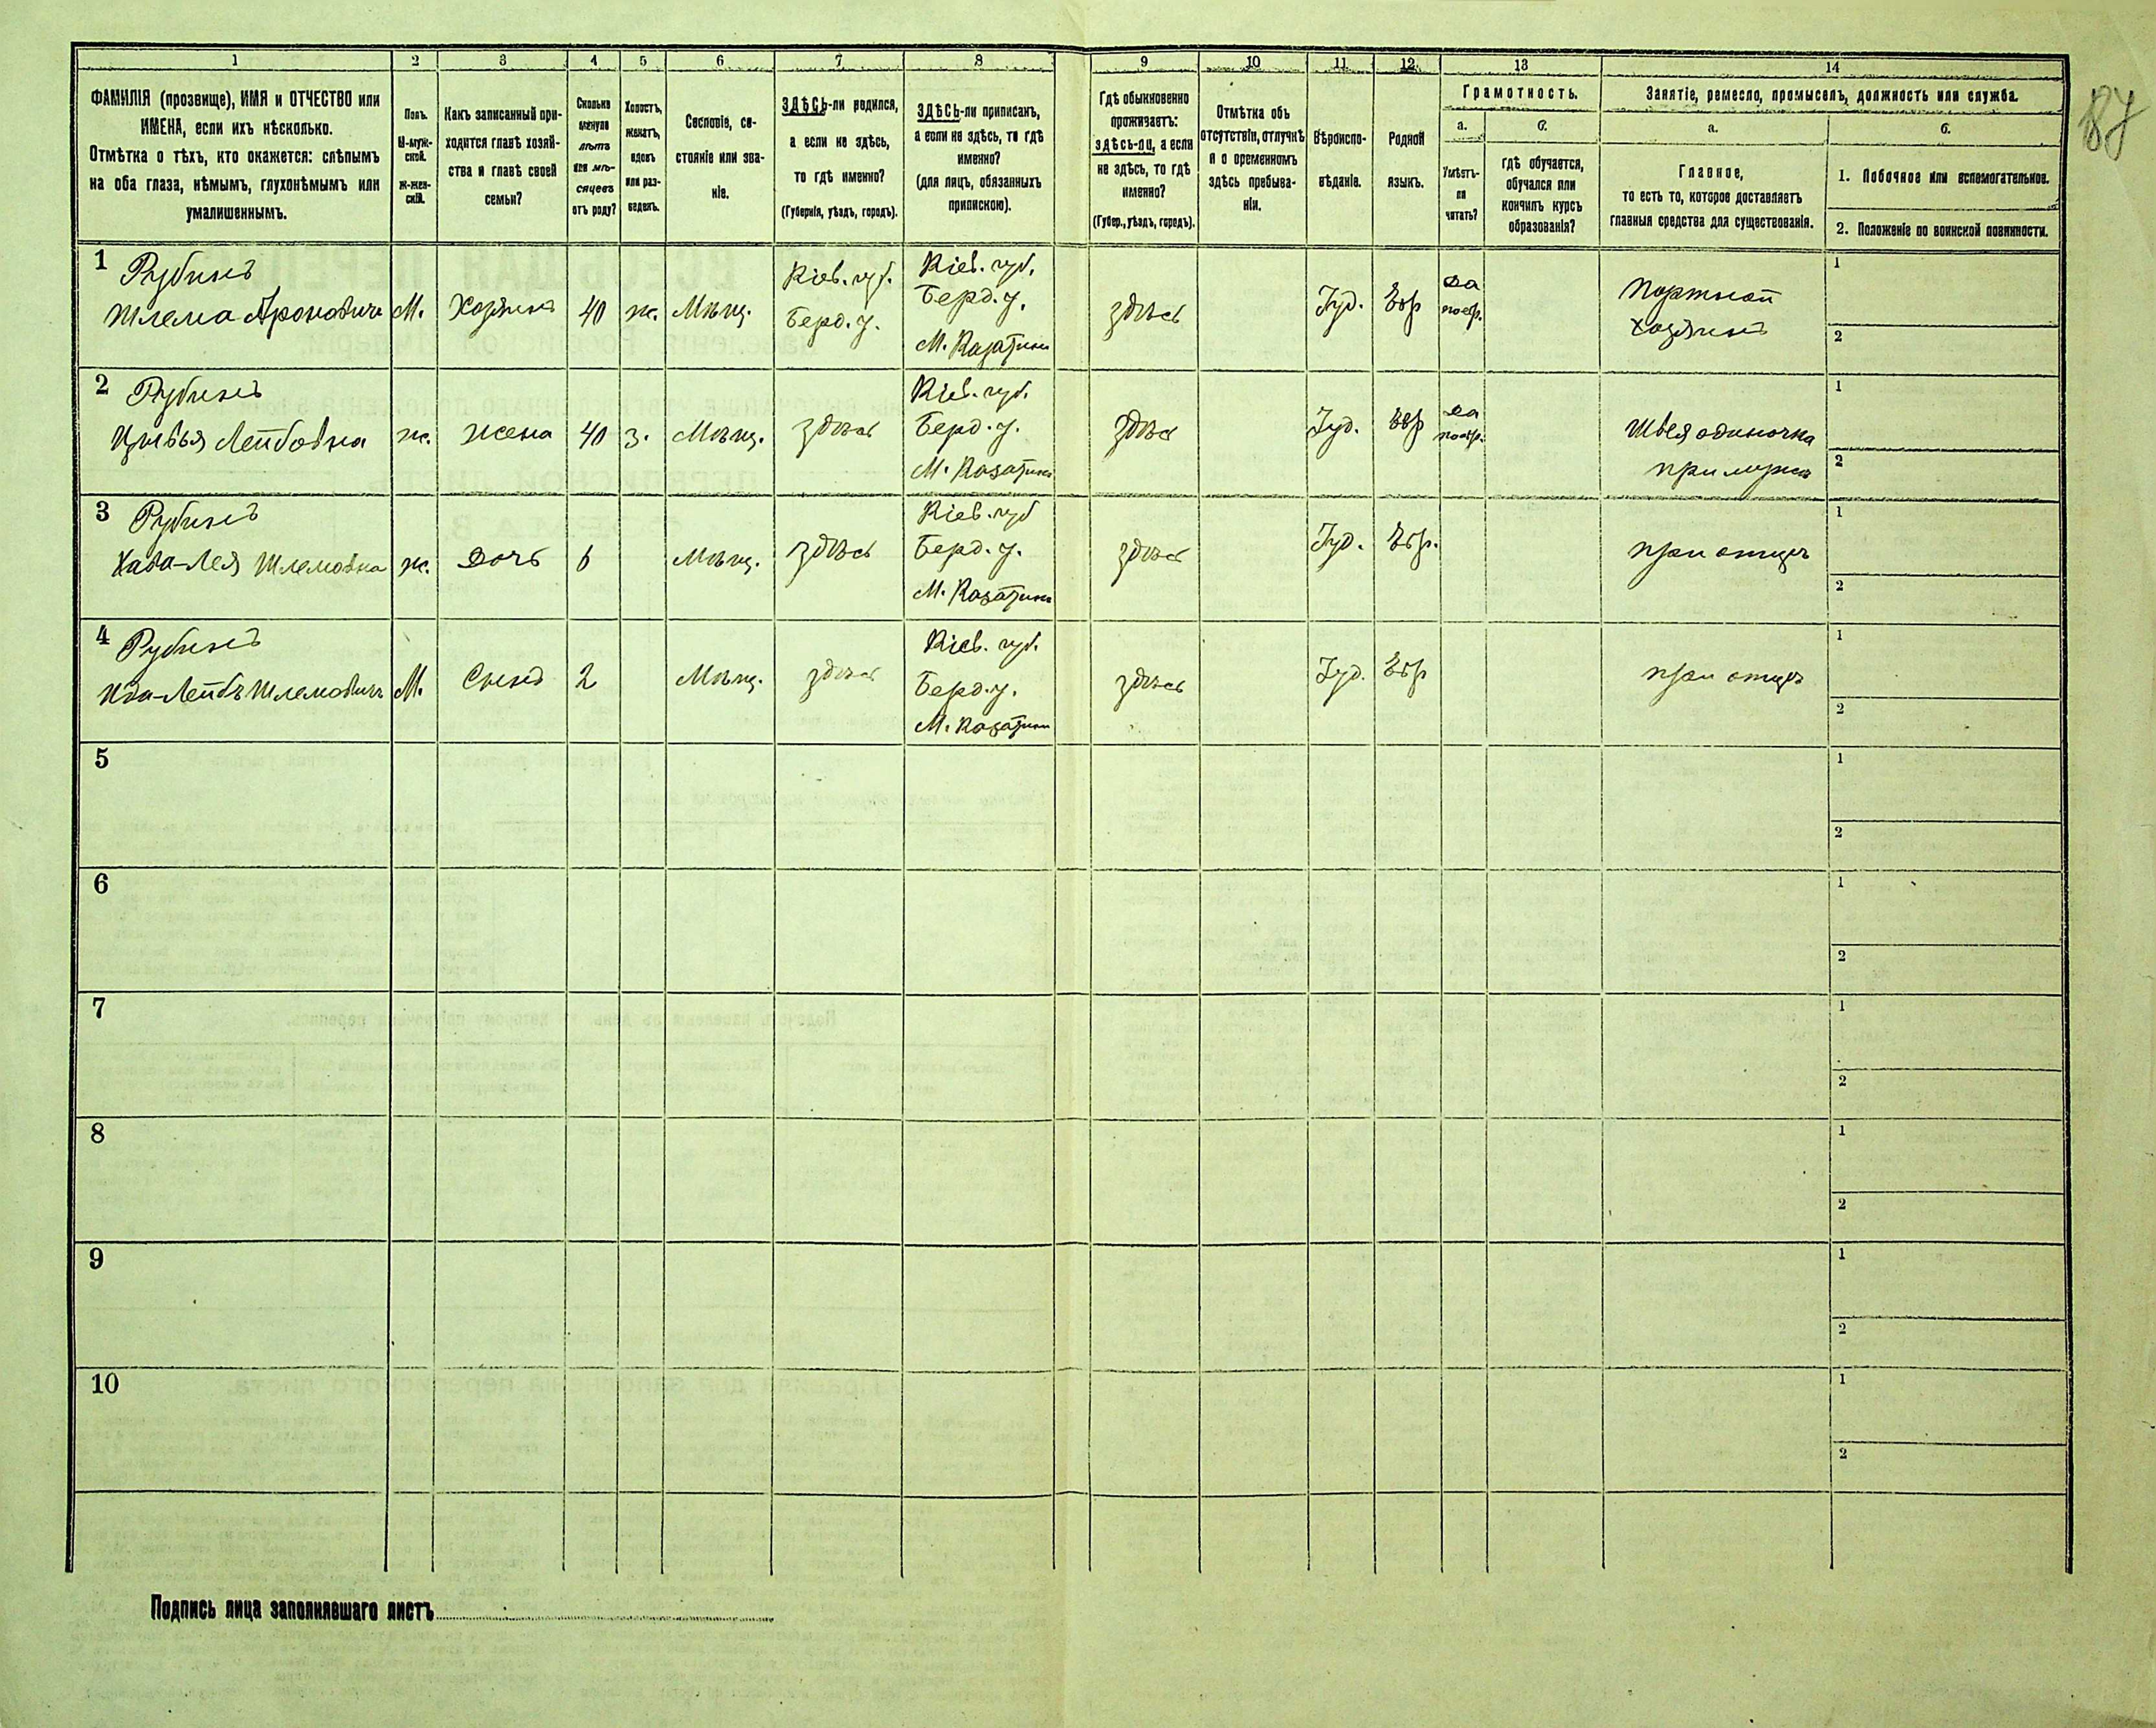 1 2 3 4 5 6 7 8 9 10 11 12 13 14
ФАМИЛІЯ (прозвище), ИМЯ и ОТЧЕСТВО или
ИМЕНА, если ихъ нѣсколько.
Отмѣтка о тѣхъ, кто окажется: слѣпымъ
на оба глаза, нѣмымъ, глухонѣмымъ или
умалишеннымъ.
Полъ.
М-муж-
ской.
ж-жен-
скій.
Какъ записанный при-
ходится главѣ хозяй-
ства и главѣ своей
семьи?
Сколько
минуло
лѣтъ
или мѣ-
сяцевъ
отъ роду?
Холостъ,
женатъ,
вдовъ
или раз-
веденъ.
Сословіе, со-
стояніе или зва-
ніе.
ЗДѢСЬ-ли родился,
а если не здѣсь,
то гдѣ именно?
(Губернія, уѣздъ, городъ).
ЗДѢСЬ-ли приписанъ,
а если не здѣсь, то гдѣ
именно?
(для лицъ, обязанныхъ
припискою).
Гдѣ обыкновенно
проживаетъ:
здѣсь-ли, а если
не здѣсь, то гдѣ
именно?
(Губер., уѣздъ, городъ).
Отмѣтка объ
отсутствіи, отлучкѣ
и о временномъ
здѣсь пребыва-
ніи.
Вѣроиспо-
вѣданіе.
Родной
языкъ.
Грамотность.
а.
Умѣетъ-
ли
читать?
б.
гдѣ обучается,
обучался или
кончилъ курсъ
образованія?
Занятіе, ремесло, промыселъ, должность или служба.
а.
Главное,
то есть то, которое доставляетъ
главныя средства для существованія.
б.
1. Побочное или вспомогательное.
2. Положеніе по воинской повинности.
87
1 Рубинъ
Шлема Ароновичъ М. Хозяинъ 40 ж. Мѣщ.
Кіев. губ.
Берд. у.
Кіев. губ.
Берд. у.
М. Казатинъ
здѣсь Іуд. Евр
да
Портной
хозяинъ
1
2
2 Рубинъ
Цивья Лейбовна ж. жена 40 з. Мѣщ. здѣсь
Кіев. губ.
Берд. у.
М. Казатинъ
здѣсь Іуд. Евр
да
Швея одиночка
при мужѣ
1
2
3 Рубинъ
Хава-Лея Шлемовна ж. Дочь 6 Мѣщ. здѣсь
Кіев. губ
Берд. у.
М. Казатинъ
здѣсь Іуд. Евр.
при отцѣ
1
2
4 Рубинъ
Лейбъ Шлемовичъ М. Сынъ 2 Мѣщ. здѣсь
Кіев. губ.
Берд. у.
М. Казатинъ
здѣсь Іуд. Евр
при отцѣ
1
2
5
1
2
6
1
2
7
1
2
8
1
2
9
1
2
10
1
2
Подпись лица заполнявшаго листъ